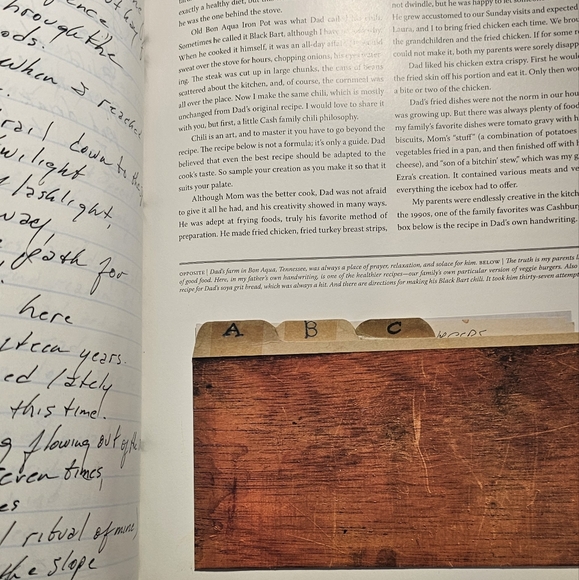 through the
ods.
when I reache
rail down to the
wilight
flashlight,
way,
path for
here
teen years.
ed lately
this time.
g flowing out of the
even times,
es
l ritual of mine,
the slope
exactly a healthy diet, but
he was the one behind the stove.
Old Ben Aqua Iron Pot was what Dad
Sometimes he called it Black Bart, although I
When he cooked it himself, it was an all-day
sweat over the stove for hours, chopping onions, his eyes
ing. The steak was cut up in large chunks, the cans of beans
scattered about the kitchen, and, of course, the cornmeal was
all over the place. Now I make the same chili, which is mostly
unchanged from Dad's original recipe. I would love to share it
with you, but first, a little Cash family chili philosophy.
Chili is an art, and to master it you have to go beyond the
recipe. The recipe below is not a formula; it's only a guide. Dad
believed that even the best recipe should be adapted to the
cook's taste. So sample your creation as you make it so that it
suits your palate.
Although Mom was the better cook, Dad was not afraid
to give it all he had, and his creativity showed in many ways.
He was adept at frying foods, truly his favorite method of
preparation. He made fried chicken, fried turkey breast strips,
not dwindle, but he was happy to let
He grew accustomed to our Sunday visits and expected
Laura, and I to bring fried chicken each time. We brou
the grandchildren and the fried chicken. If for some r
could not make it, both my parents were sorely disapp
Dad liked his chicken extra crispy. First he woul
the fried skin off his portion and eat it. Only then wo
a bite or two of the chicken.
Dad's fried dishes were not the norm in our hou
was growing up. But there was always plenty of food
my family's favorite dishes were tomato gravy with h
biscuits, Mom's "stuff" (a combination of potatoes
vegetables fried in a pan, and then finished off with
cheese), and "son of a bitchin' stew," which was my g
Ezra's creation. It contained various meats and ve
everything the icebox had to offer.
My parents were endlessly creative in the kitch
the 1990s, one of the family favorites was Cashbur
box below is the recipe in Dad's own handwriting.
OPPOSITE | Dad's farm in Bon Aqua, Tennessee, was always a place of prayer, relaxation, and solace for him. BELOW | The truth is my parents l
of good food. Here, in my father's own handwriting, is one of the healthier recipes—our family's own particular version of veggie burgers. Also
recipe for Dad's soya grit bread, which was always a hit. And there are directions for making his Black Bart chili. It took him thirty-seven attempt
A B C